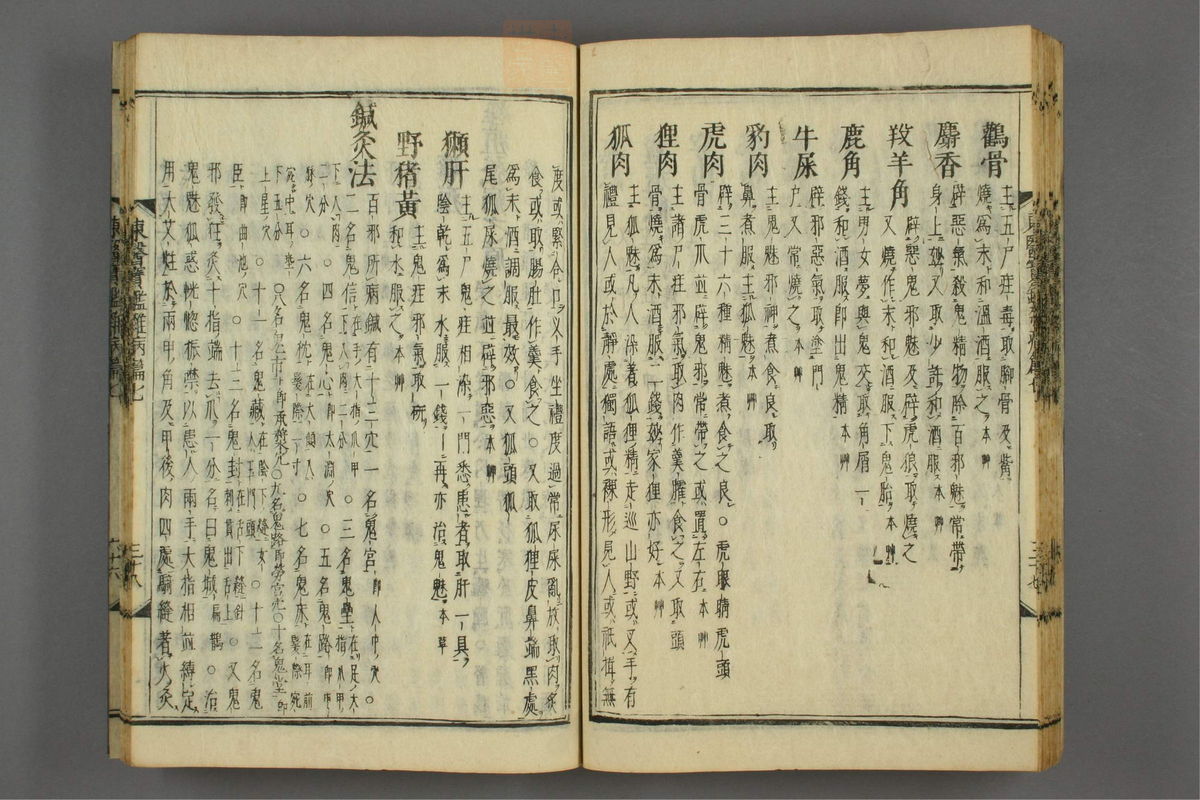 鸛骨
主五尸疰毒取脚骨及觜
燒爲末和溫酒服之本艸
麝香
辟惡氣殺鬼精物除百邪魅常帶
身上玅又取少許和酒服本艸
羖羊角
辟惡鬼邪魅及辟虎狼取燒之
又燒作末和酒服下鬼胎本艸
鹿角
主男女夢與鬼交取角屑一
錢和酒服卽出鬼精本艸
牛屎
辟邪惡氣取塗門
戶又常燒之本艸
豹肉
主鬼魅邪神煮食良取
鼻煮服主狐魅本艸
虎肉
辟三十六種精魅煮食之良○虎眼睛虎頭
骨虎爪並辟鬼邪常帶之或置左右本艸
狸肉
主諸尸疰邪氣取肉作羹臛食之又取頭
骨燒爲末酒服二錢玅家狸亦好本艸
狐肉
主狐魅凡人染著狐狸精走巡山野或叉手有
禮見人或於靜處獨語或裸形見人或祇揖無
度或緊合口叉手坐禮度過常尿屎亂放取肉炙
食或取腸肚作羹食之○又取狐狸皮鼻端黑處
爲末酒調服最效○又狐頭狐
尾狐屎燒之並辟邪惡本艸
獺肝
主五尸鬼疰相染一門悉患者取肝一具
陰乾爲末水服一錢日再亦治鬼魅本草
野猪黃
主鬼疰邪氣取研
錢和水服之本艸
鍼灸法
百邪所病鍼有十三穴一名鬼宮卽人中穴○
二名鬼信在手大指爪甲
下入肉二分○三名鬼壘在足大指爪甲
下入肉二分○四名鬼心卽太淵穴○五名鬼路卽申
脉穴○六名鬼枕在大顀入
髮際一寸○七名鬼床在耳前髮際宛
宛中耳垂
下五分○八名鬼市卽承漿穴○九名鬼路卽勞宮穴○十名鬼堂卽
上星穴○十一名鬼藏在陰下縫女
人玉門頭○十二名鬼
臣卽曲池穴○十三名鬼封在舌下縫針
刺貫出舌上○又鬼
邪發狂灸十指端去爪一分名曰鬼城扁鵲○治
鬼魅狐惑恍惚振噤以患人兩手大指相並縛定
用大艾炷於兩甲角及甲後肉四處騎縫著火灸
東醫寶鑑雜病篇七